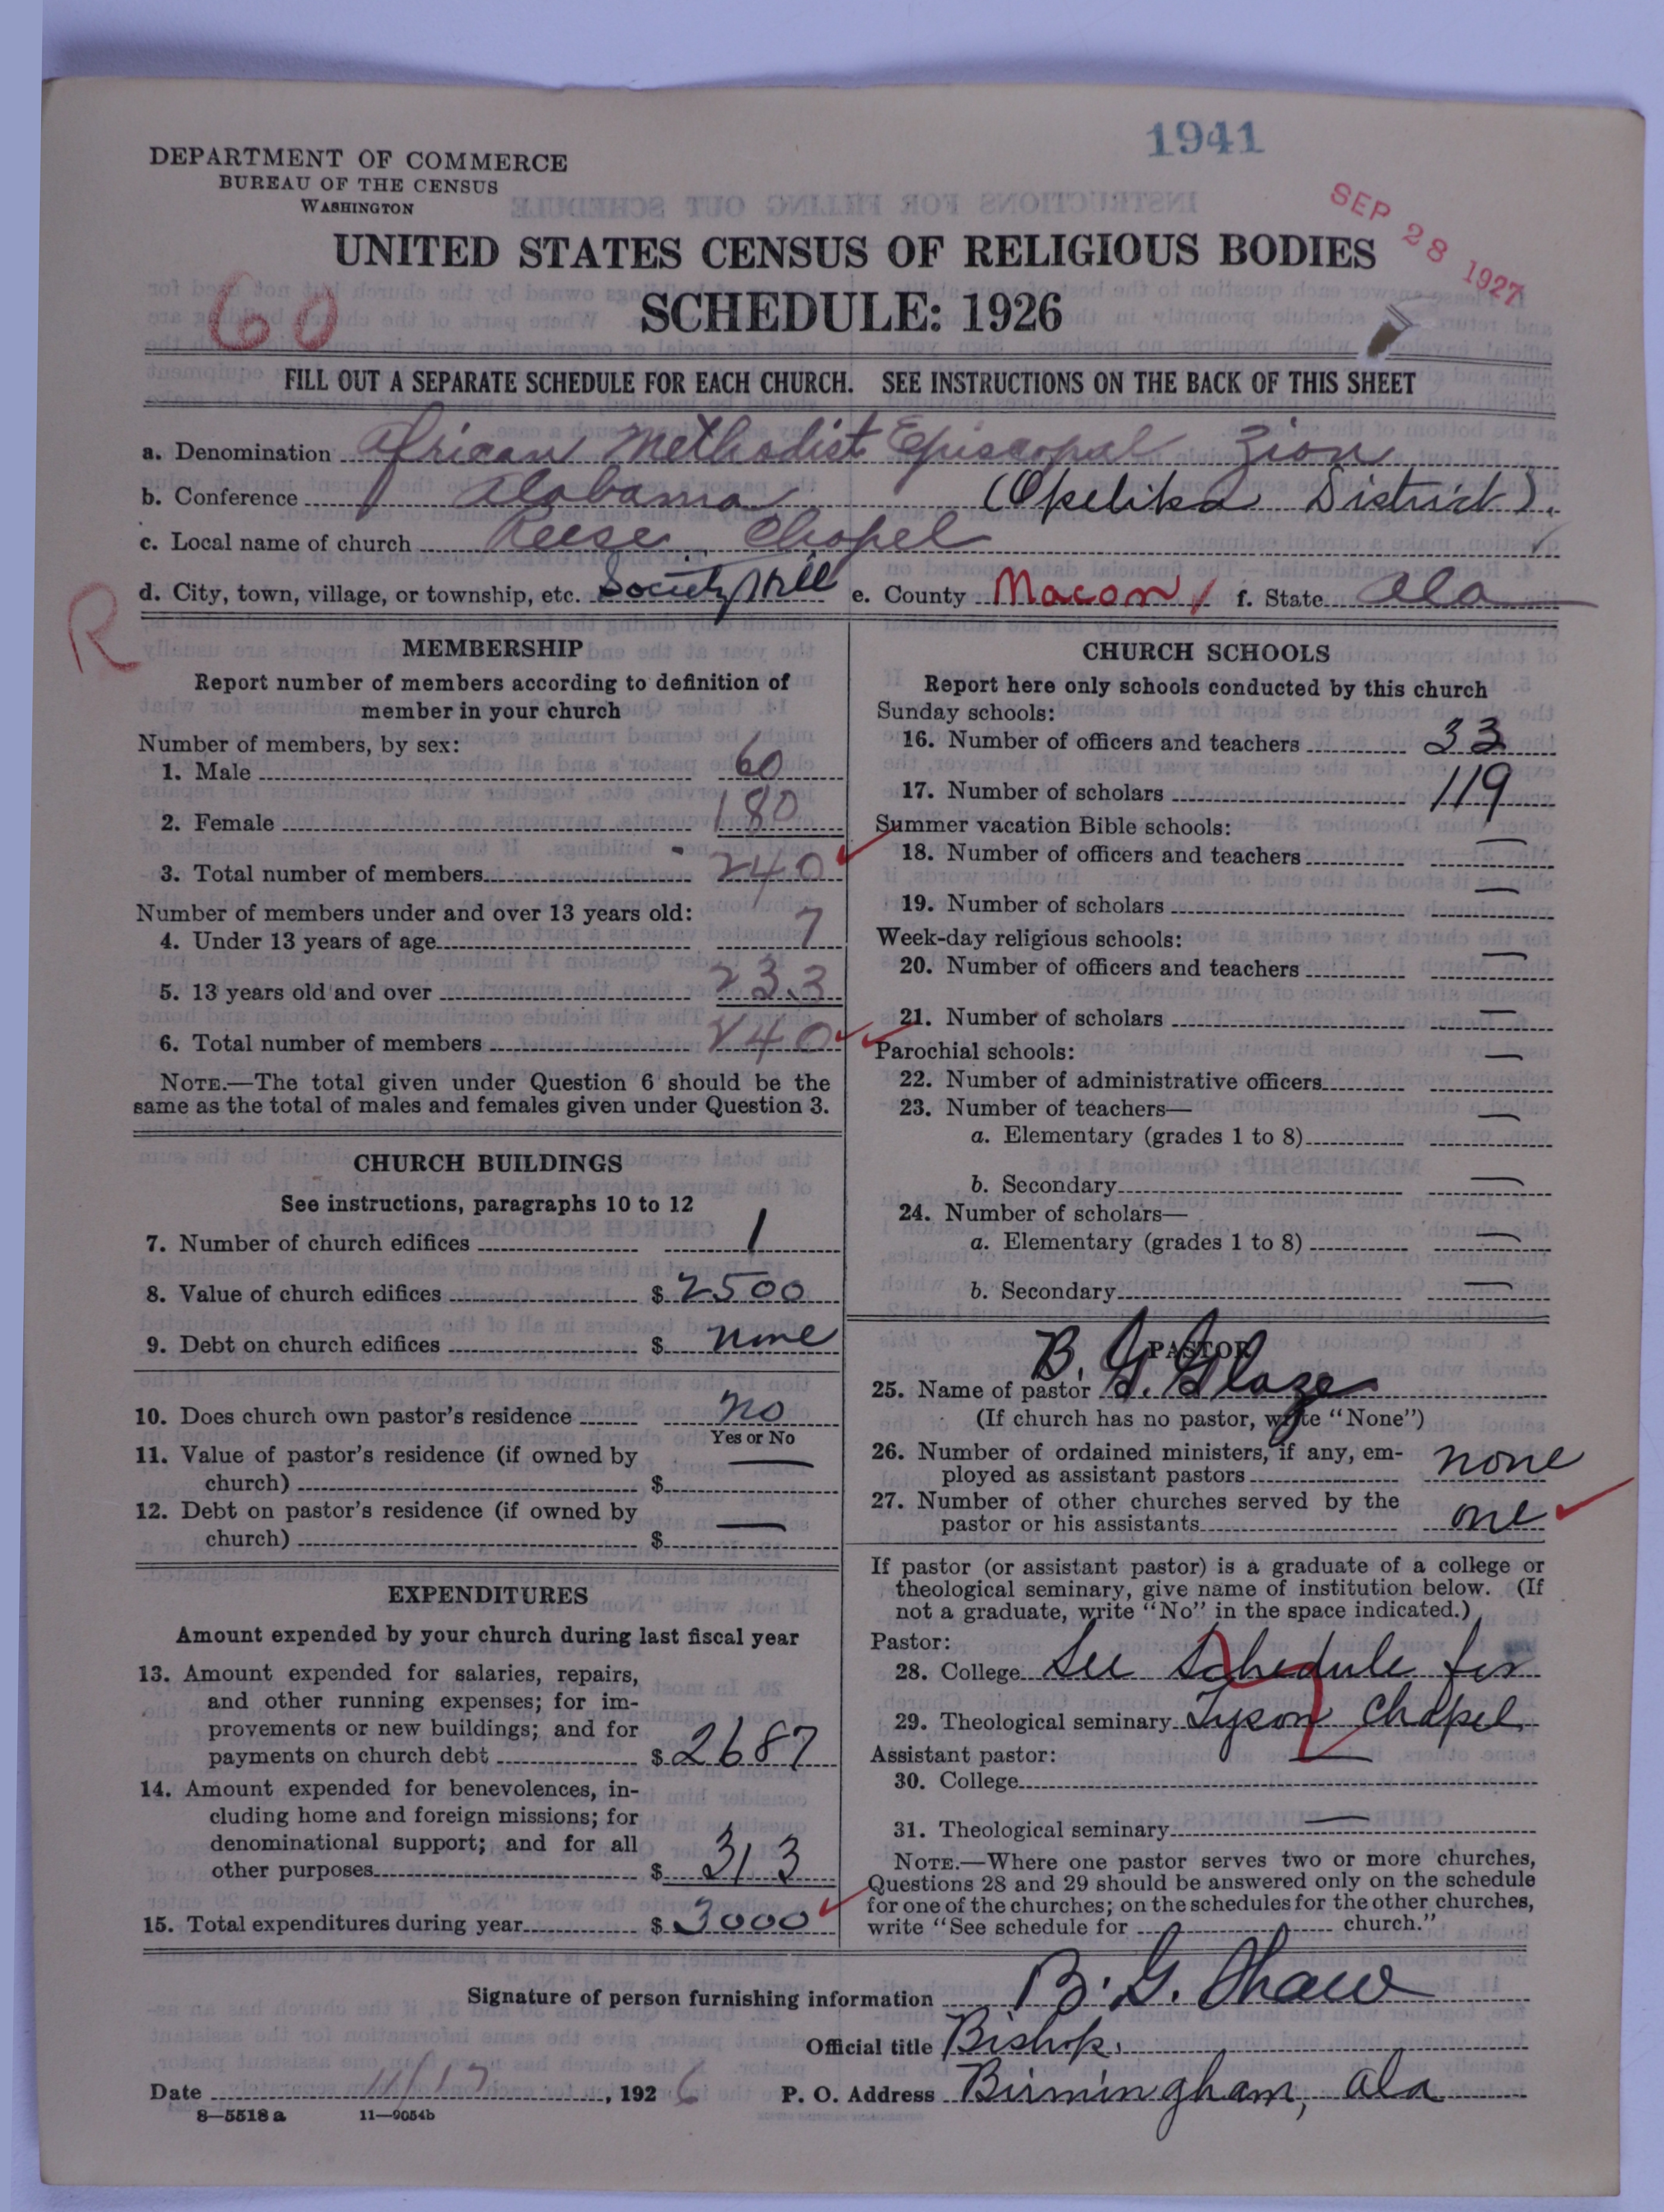 1941
SEP 28 1927
DEPARTMENT OF COMMERCE
BUREAU OF THE CENSUS
WASHINGTON
UNITED STATES CENSUS OF RELIGIOUS BODIES
SCHEDULE: 1926
60
FILL OUT A SEPARATE SCHEDULE FOR EACH CHURCH. SEE INSTRUCTIONS ON THE BACK OF THIS SHEET
a. Denomination African Methodist Episcopal Zion
b. Conference Alabama (Opelika District).
c. Local name of church Reese Chapel
d. City, town, village, or township, etc. Society Hill e. County Macon f. State Ala
R
MEMBERSHIP
Report number of members according to definition of
member in your church
Number of members, by sex:
1. Male 60
2. Female 180
3. Total number of members 240
Number of members under and over 13 years old:
4. Under 13 years of age 7
5. 13 years old and over 233
6. Total number of members 240
NOTE.—The total given under Question 6 should be the
same as the total of males and females given under Question 3.
CHURCH BUILDINGS
See instructions, paragraphs 10 to 12
7. Number of church edifices 1
8. Value of church edifices $ 2500
9. Debt on church edifices $ none
10. Does church own pastor's residence No
Yes or No
11. Value of pastor's residence (if owned by
church) $ —
12. Debt on pastor's residence (if owned by
church) $ —
EXPENDITURES
Amount expended by your church during last fiscal year
13. Amount expended for salaries, repairs,
and other running expenses; for im-
provements or new buildings; and for
payments on church debt $ 2687
14. Amount expended for benevolences, in-
cluding home and foreign missions; for
denominational support; and for all
other purposes $ 313
15. Total expenditures during year $ 3000
CHURCH SCHOOLS
Report here only schools conducted by this church
Sunday schools:
16. Number of officers and teachers 33
17. Number of scholars 119
Summer vacation Bible schools:
18. Number of officers and teachers —
19. Number of scholars —
Week-day religious schools:
20. Number of officers and teachers —
21. Number of scholars —
Parochial schools:
22. Number of administrative officers —
23. Number of teachers—
a. Elementary (grades 1 to 8) —
b. Secondary —
24. Number of scholars—
a. Elementary (grades 1 to 8) —
b. Secondary —
PASTOR
25. Name of pastor B. G. Glaze
(If church has no pastor, write "None")
26. Number of ordained ministers, if any, em-
ployed as assistant pastors none
27. Number of other churches served by the
pastor or his assistants one
If pastor (or assistant pastor) is a graduate of a college or
theological seminary, give name of institution below. (If
not a graduate, write "No" in the space indicated.)
Pastor:
28. College See Schedule for
29. Theological seminary Tyson Chapel
Assistant pastor: —
30. College
31. Theological seminary —
NOTE.—Where one pastor serves two or more churches,
Questions 28 and 29 should be answered only on the schedule
for one of the churches; on the schedules for the other churches,
write "See schedule for church."
Signature of person furnishing information B. G. Shaw
Official title Bishop.
Date 11/17, 1926 P. O. Address Birmingham, Ala
8—5518 a 11—9054b